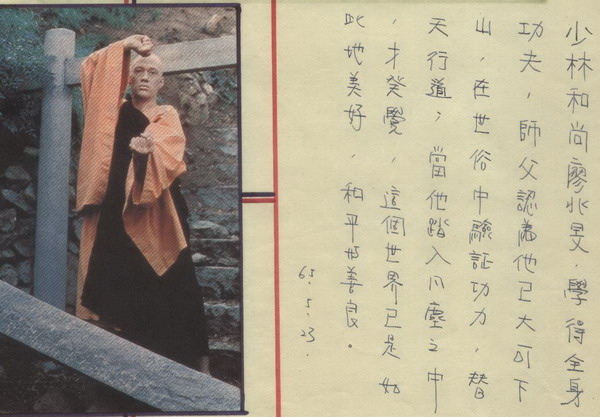 少林和尚廖兆旻,學得全身
功夫,師父認為他已大可下
山,在世俗中驗証功力,替
天行道;當他踏入凡塵之中
,才癸覺,這個世界已是如
此地美好,和平與善良。
65.5.23.